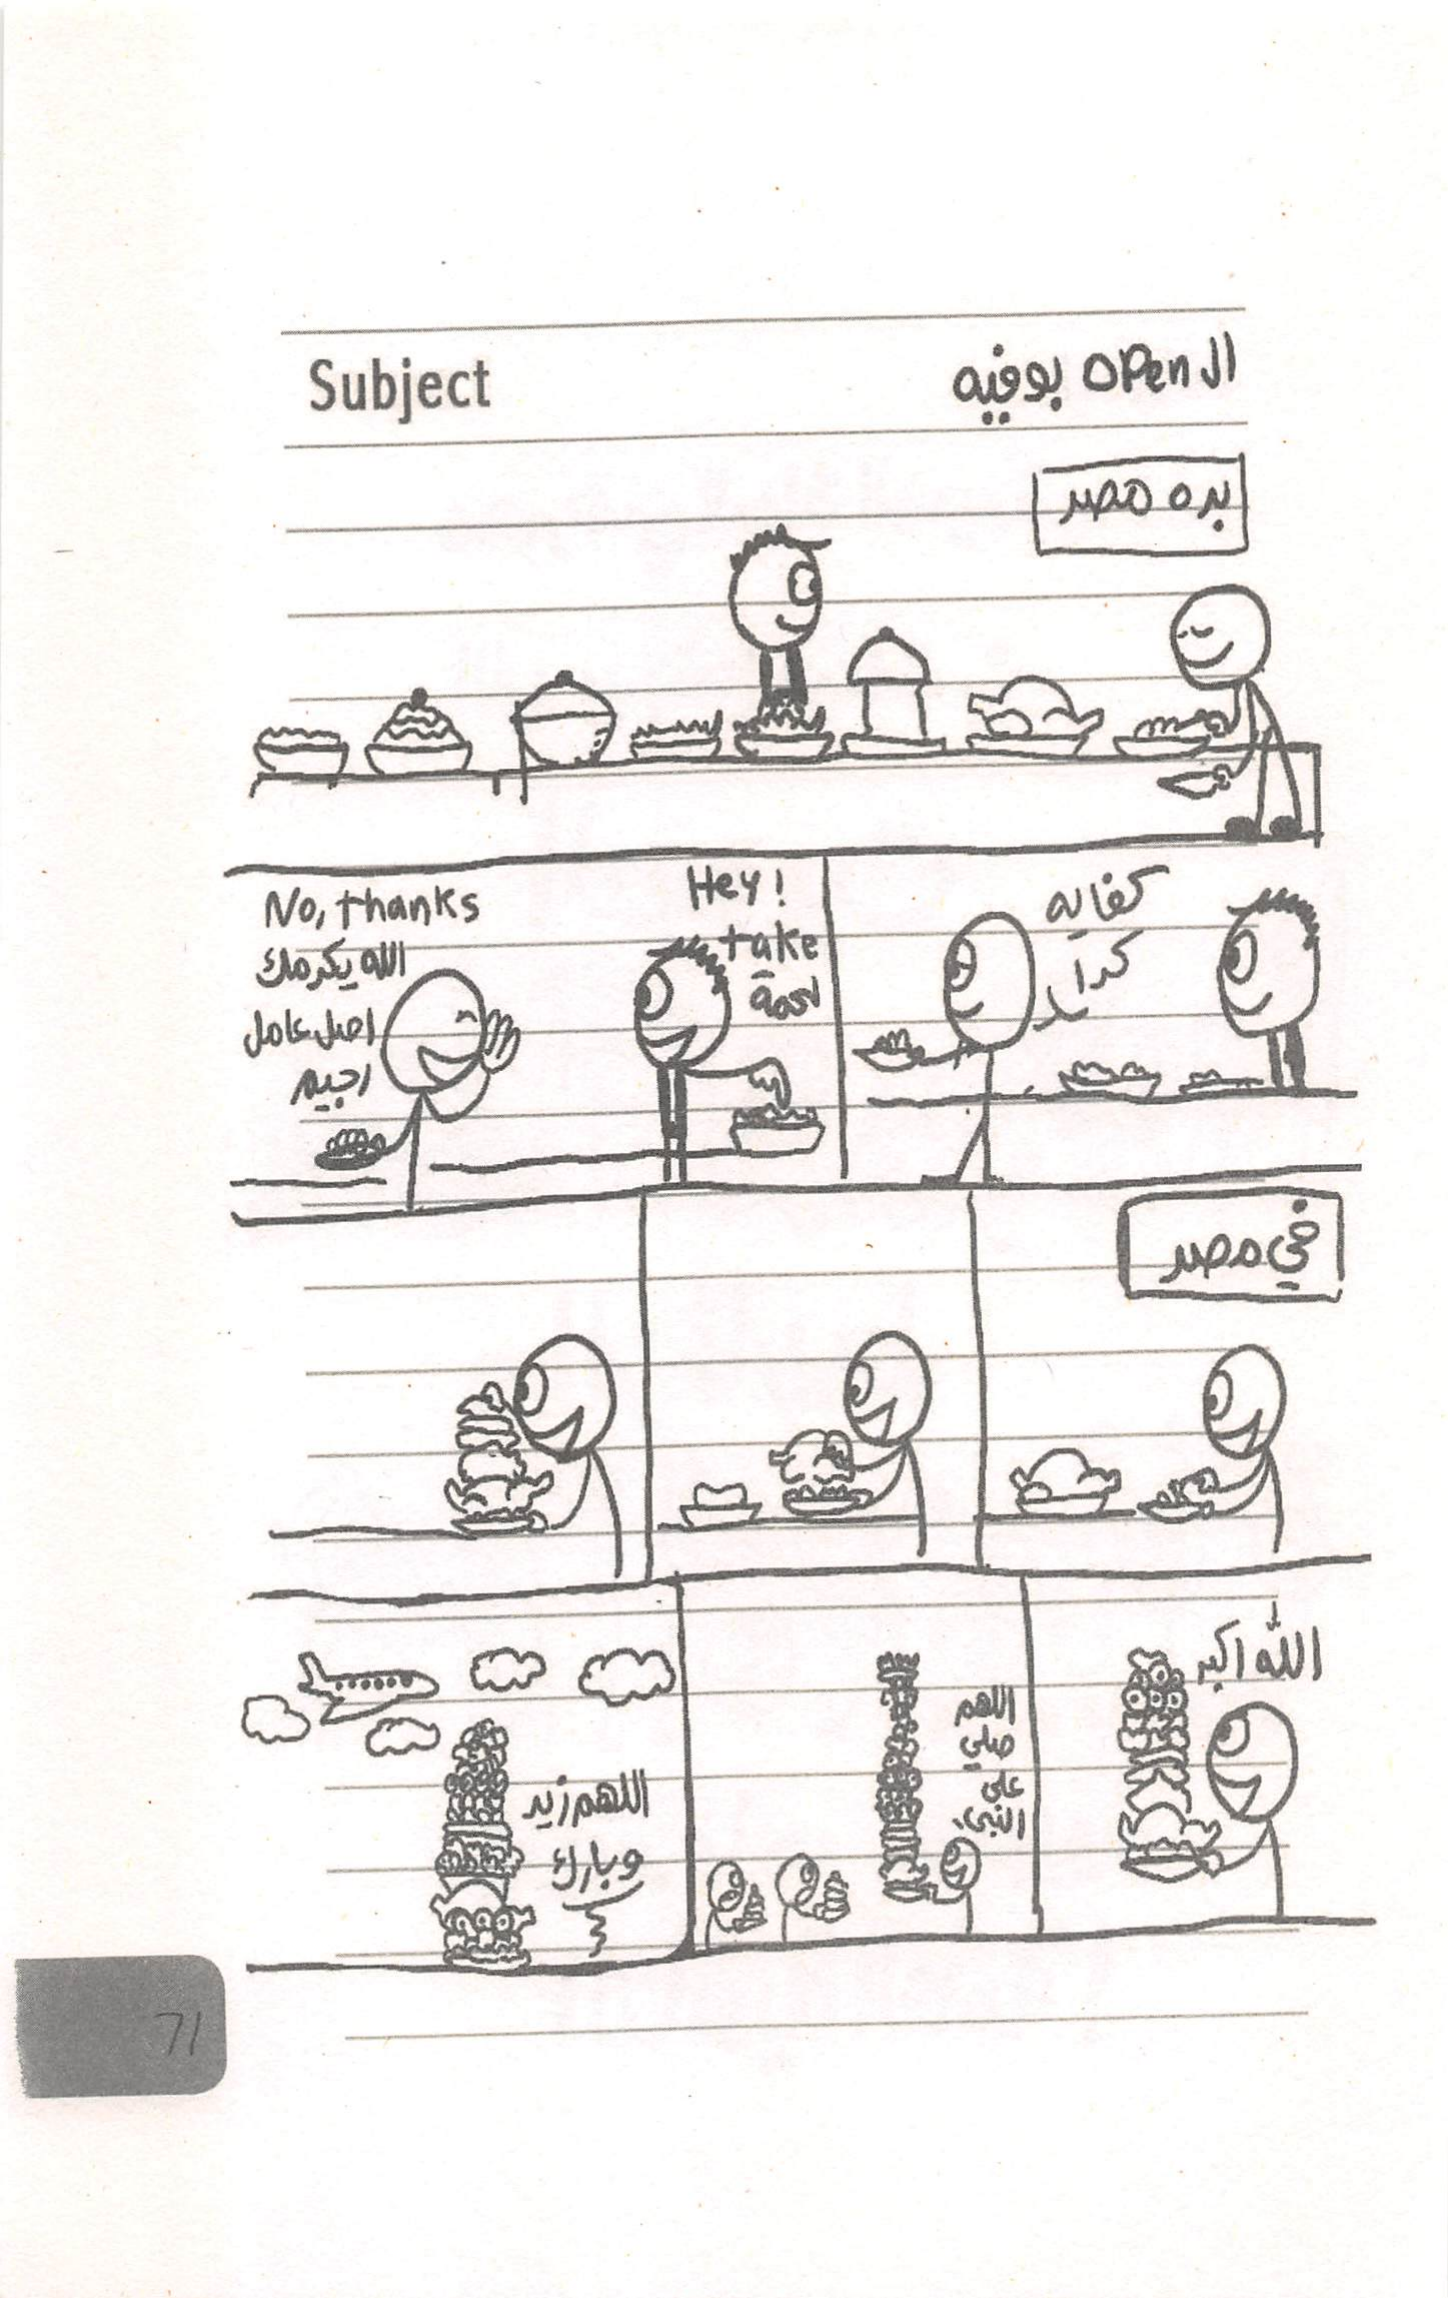 Subject
ال open بوفيه
بره مصر
كفايه
كدا
Hey!
take
لحمة
No, thanks
الله يكرمك
اصل عامل
رجيم
في مصر
الله اكبر
اللهم
صلي
على
النبي
اللهم زيد
وبارك
71